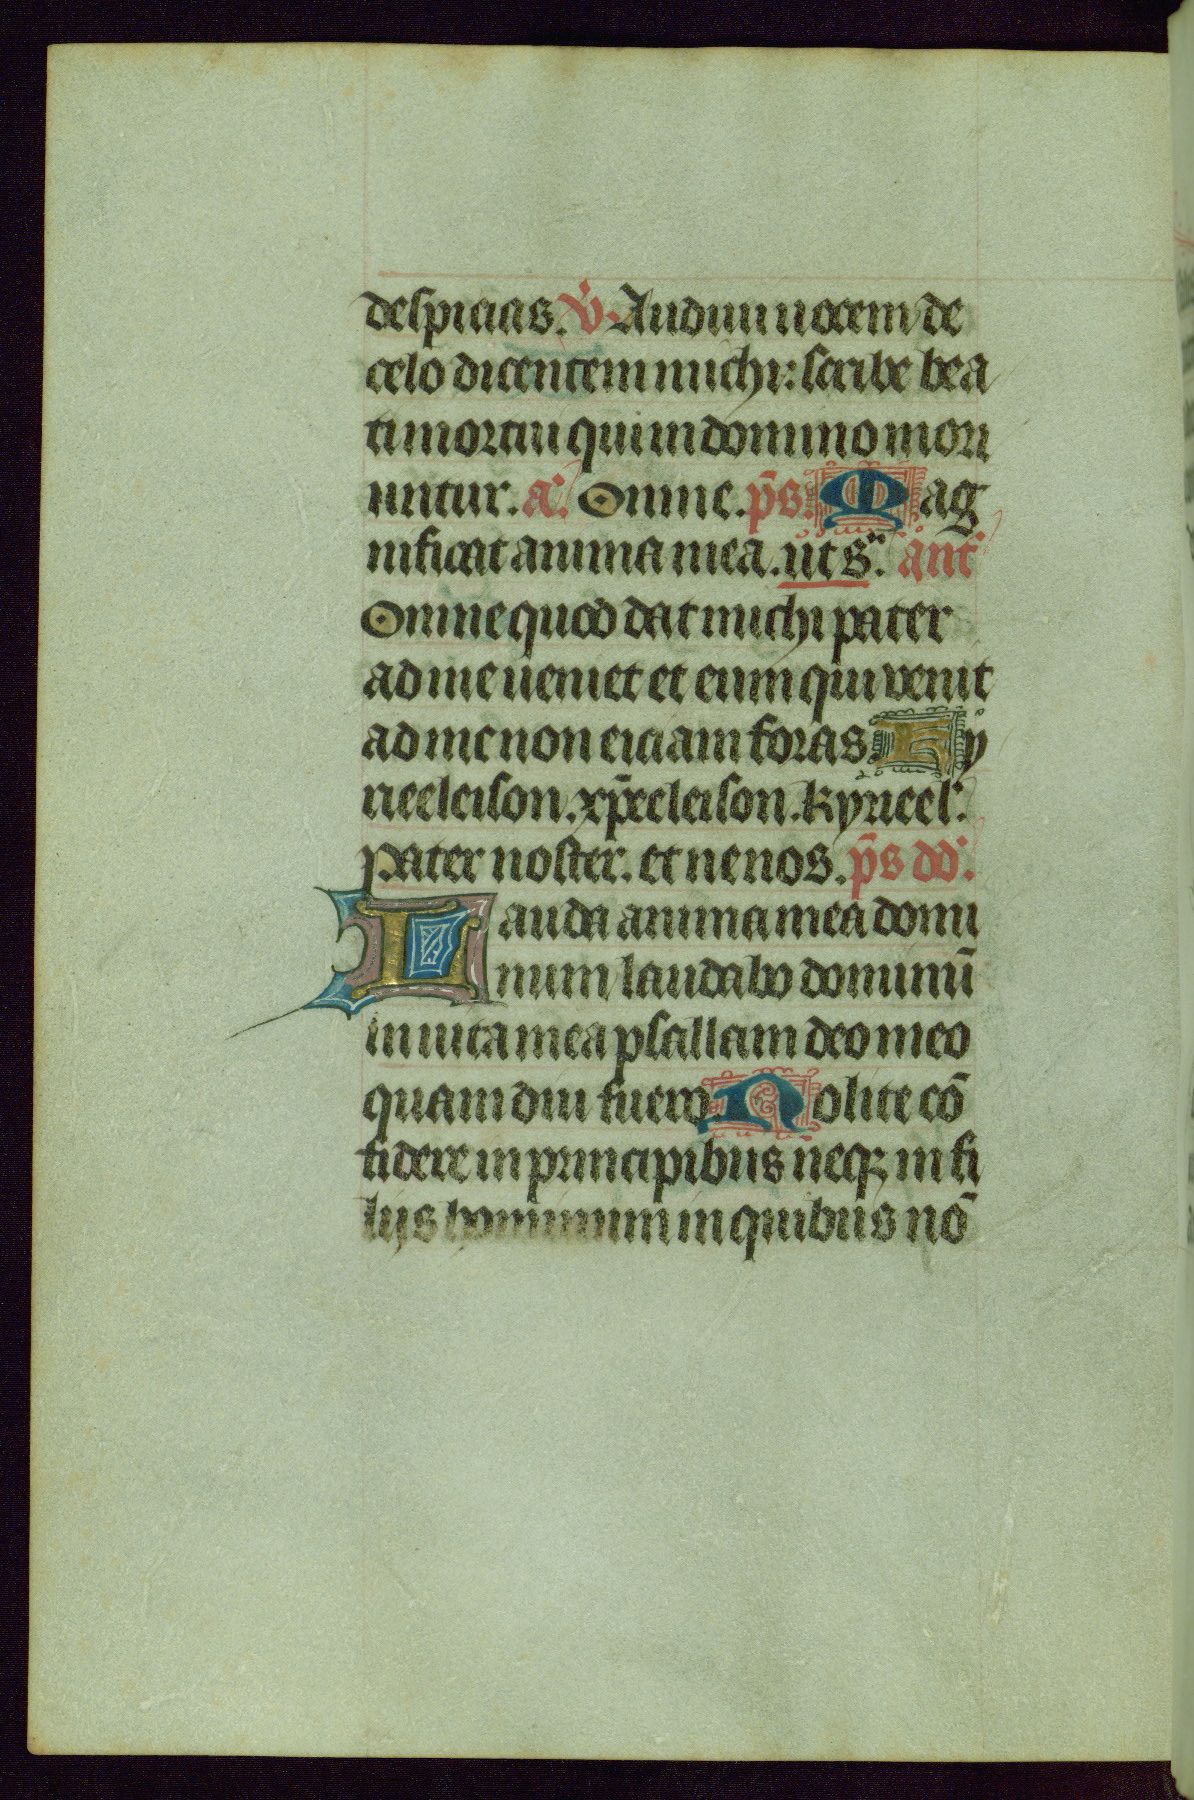 despicias. v̇. Audiui uocem de
celo dicentem michi: scribe bea
ti mortui qui in domino mori
untur. a. Omne. p̄s. Mag
nificat anima mea. ut sͣ. ant
Omne quod dat michi pater
ad me ueniet et eum qui venit
ad me non eiciam foras. Ky
rieeleison. xp̄eeleison. Kyrieel.
Pater noster. et ne nos. p̄s dd.
Lauda anima mea domi
num laudabo dominū
in uita mea psallam deo meo
quam diu fuero. Nolite cō
fidere in principibus neqꝫ in fi
lijs hominum in quibus nō